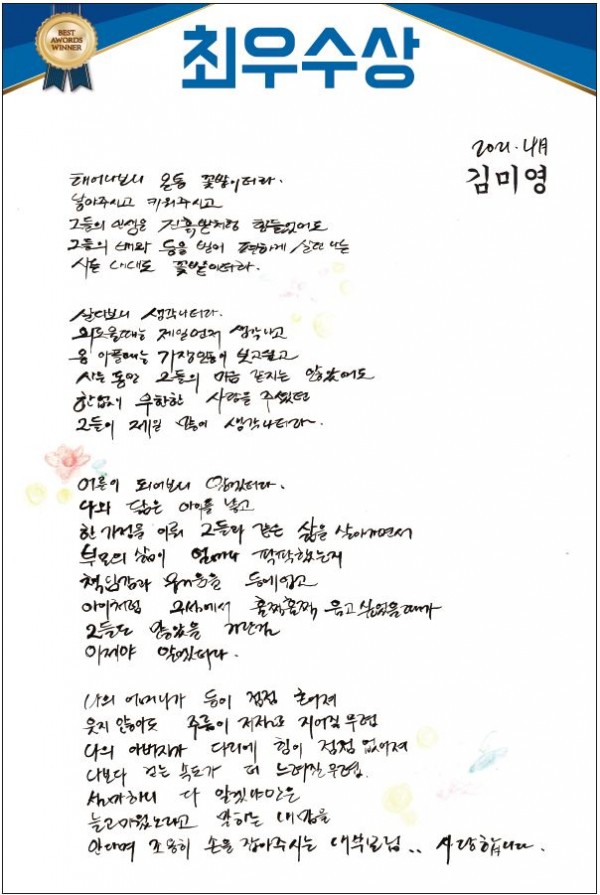 BEST
AWORDS
WINNER
최우수상
2021. 4月
김미영
태어나보니 온통 꽃밭이더라.
낳아주시고 키워주시고
그들의 인생은 진흙밭처럼 힘들었어도
그들의 배와 등을 빌어 편하게 살던 나는
사는 내내도 꽃밭이더라.
살다보니 생각나더라.
외로울때는 제일먼저 생각나고
몸 아플때는 가장많이 보고싶고
사는 동안 그들의 마음 같지는 않았어도
한없이 무한한 사랑을 주셨던
그들이 제일 많이 생각나더라.
어른이 되어보니 알겠더라.
나와 닮은 아이를 낳고
한 가정을 이뤄 그들과 같은 삶을 살아가면서
부모의 삶이 얼마나 팍팍했는지
책임감과 무거움을 등에업고
아이처럼 구석에서 훌쩍훌쩍 울고 싶었을때가
그들도 많았을 거란걸
이제야 알겠더라.
나의 어머니가 등이 점점 휘어져
웃지 않아도 주름이 저절로 지어질 무렵
나의 아버지가 다리에 힘이 점점 없어져
나보다 걷는 속도가 더 느려질 무렵.
말하는 내 맘을
안다며 조용히 손을 잡아주시는 내부모님.. 사랑합니다.